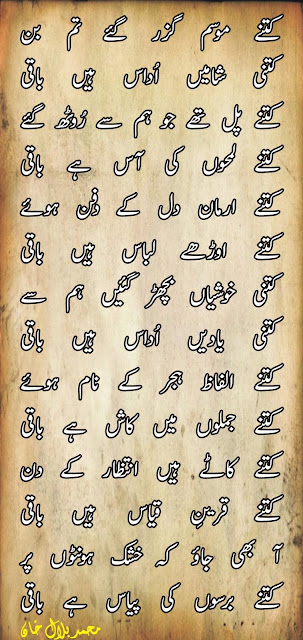 کتنے موسم گزر گئے تم بن
کتنی شامیں اُداس ہیں باقی
کتنے پل تھے جو ہم سے رُوٹھ گئے
کتنے لمحوں کی آس ہے باقی
کتنے ارمان دل کے دفن ہوئے
کتنے اوڑھے لباس ہیں باقی
کتنی خوشیاں بچھڑ گئیں ہم سے
کتنی یادیں اُداس ہیں باقی
کتنے الفاظ ہجر کے نام ہوئے
کتنے جملوں میں کاش ہے باقی
کتنے کاٹے ہیں انتظار کے دن
کتنے قرینِ قیاس ہیں باقی
آ بھی جاؤ کہ خشک ہونٹوں پر
کتنے برسوں کی پیاس ہے باقی
محمد بلال خان